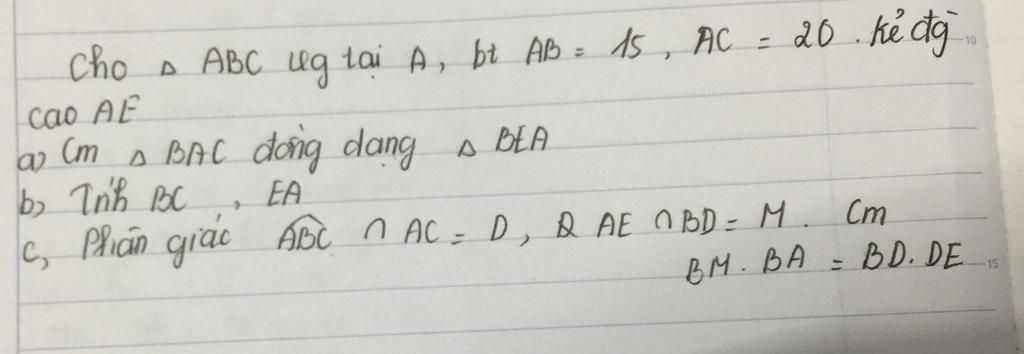 Cho △ ABC vg tại A, bt AB = 15, AC = 20. kẻ đg
cao AE
a) Cm △ BAC đồng dạng △ BEA
b) Tính BC, EA
c, Phân giác ABC ∩ AC = D, & AE ∩ BD = M. Cm
BM. BA = BD. DE
10
15